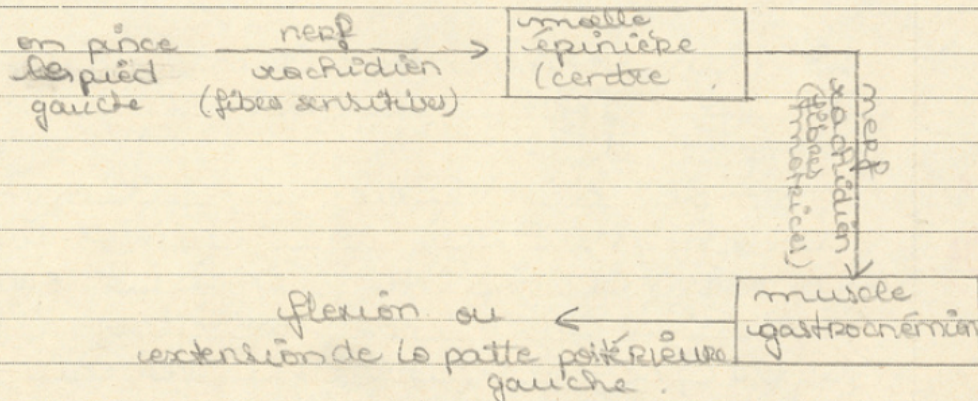 on pince
le pied
gauche
nerf
rachidien
(fibres sensitives)
moelle
épinière
(centre
nerf
rachidien
(fibres
motrices)
muscle
gastrocnémien
flexion ou
extension de la patte postérieure
gauche.